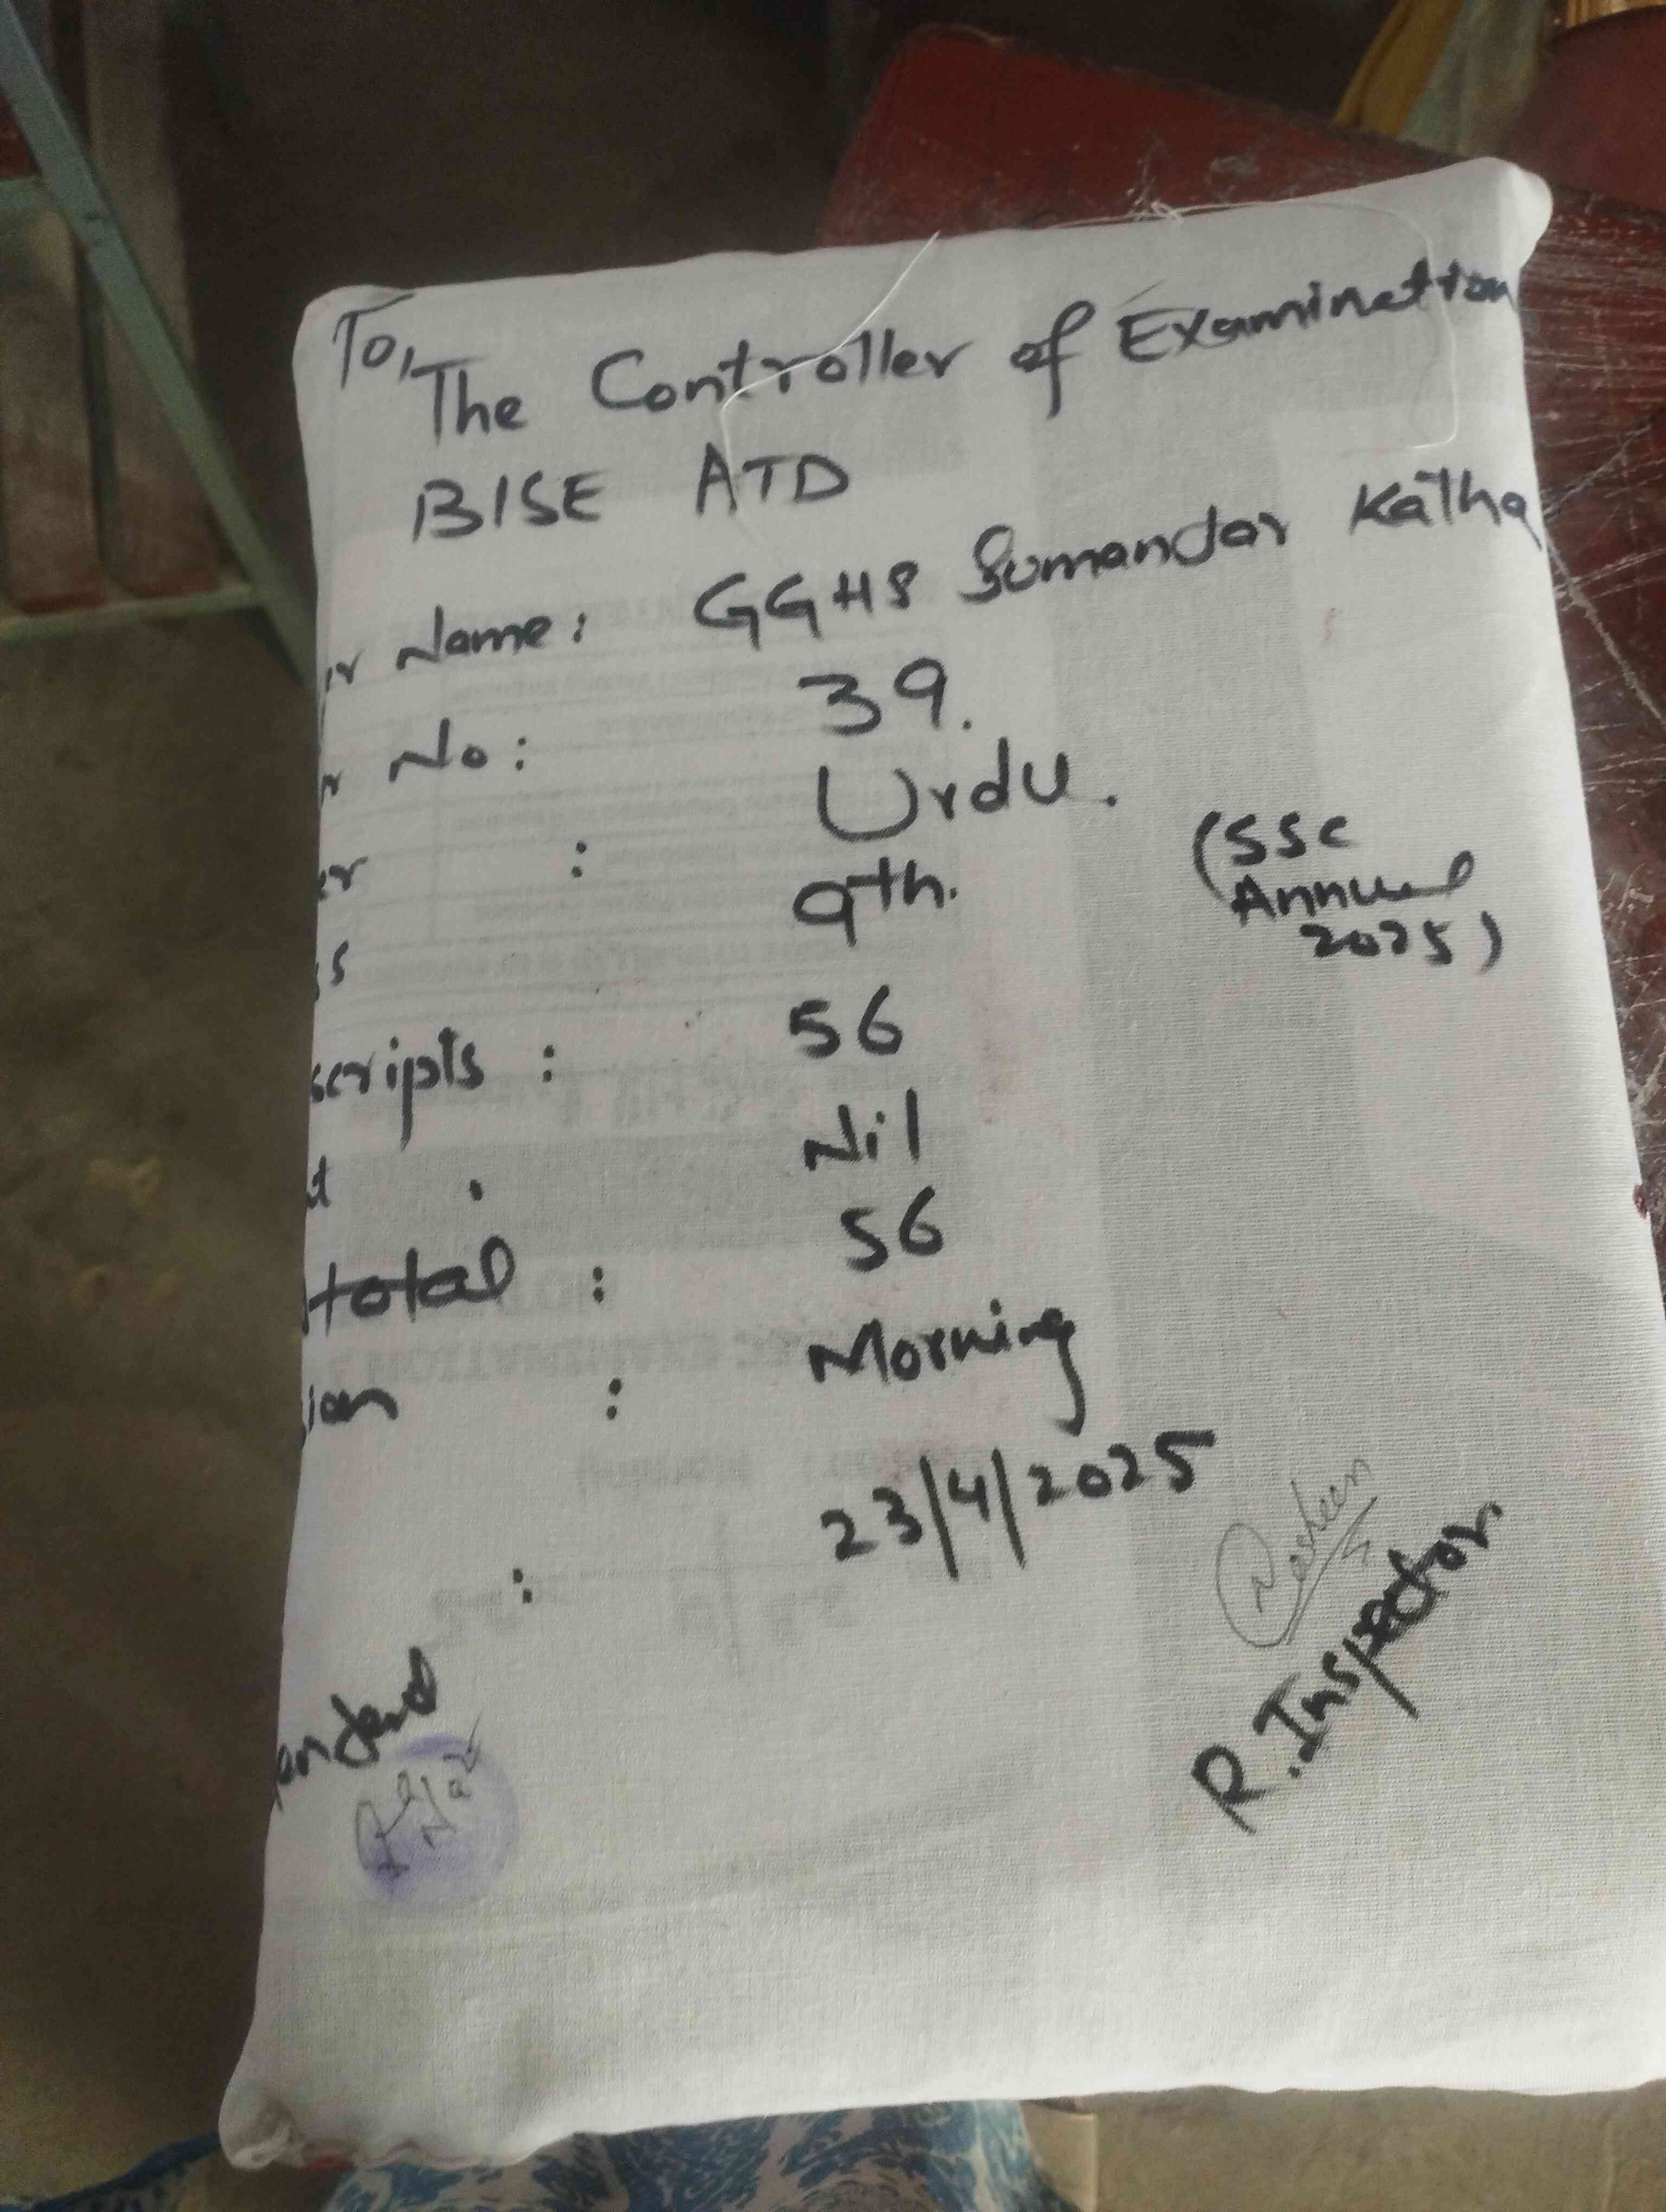 To,
The Controller of Examination
BISE ATD
Name: GGHS Sumandar Katha
No: 39.
: Urdu.
9th.
(SSC
Annual
2025)
scripts : 56
Nil
total : 56
: Morning
: 23/4/2025
R. Inspector